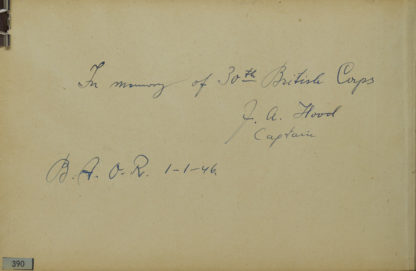 In memory of 30th British Corps
J. A. Hood
Captain
B.A.O.R. 1-1-46
390